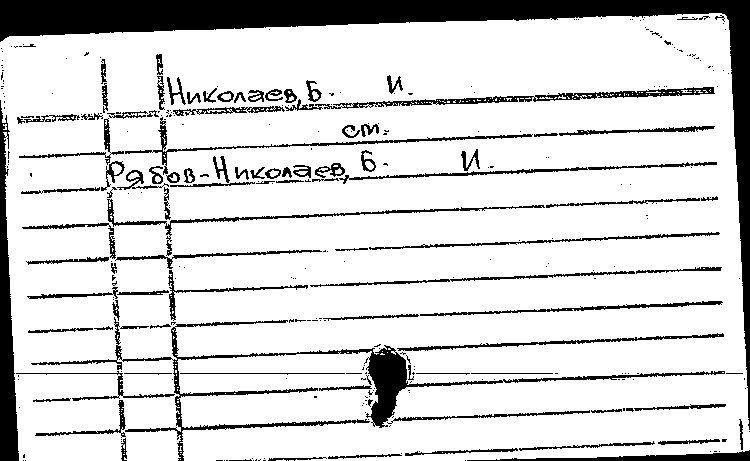 Николаев, Б. И.
ст.
Рябов-Николаев, Б. И.